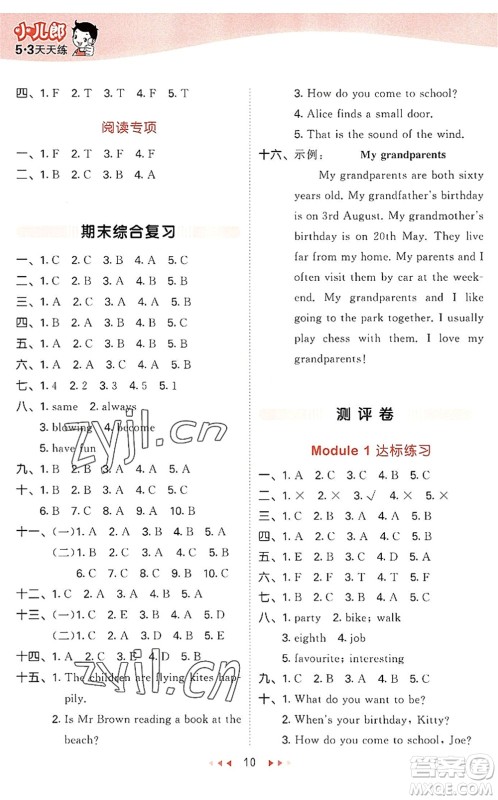 小儿郎
5·3天天练
四、1. F 2. T 3. T 4. F 5. T
阅读专项
一、1. F 2. F 3. T 4. T 5. F
二、1. B 2. C 3. A
期末综合复习
一、1. C 2. C 3. B 4. A 5. C
二、1. B 2. C 3. B 4. A 5. A
三、1. A 2. C 3. B 4. A 5. C
四、1. B 2. A 3. B 4. A 5. B
五、1. A 2. C 3. B 4. C 5. C
六、1. A 2. C 3. B 4. A 5. C
七、1. 4 2. 2 3. 1 4. 3 5. 5
八、1. same 2. always
3. blowing 4. become
5. have fun
九、1. B 2. A 3. B 4. A 5. B
十、1. B 2. B 3. A 4. C 5. A
6. B 7. B 8. C 9. A 10. B
十一、(一)1. A 2. A 3. B 4. B 5. A
(二)1. B 2. C 3. A 4. B 5. B
6. C 7. C 8. C 9. A 10. B
十二、1. C 2. D 3. B 4. A 5. E
十三、(一)1. C 2. B 3. E 4. A 5. D
(二)1. D 2. E 3. A 4. C 5. B
十四、1. A 2. C 3. B 4. A 5. C
十五、1. The children are flying kites hap-
pily.
2. Is Mr Brown reading a book at the
beach?
3. How do you come to school?
4. Alice finds a small door.
5. That is the sound of the wind.
十六、示例： My grandparents
My grandparents are both sixty
years old. My grandfather's birthday
is on 3rd August. My grandmother's
birthday is on 20th May. They live
far from my home. My parents and I
often visit them by car at the week-
end. My grandparents and I like
going to the park together. I usually
play chess with them. I love my
grandparents!
测评卷
Module 1 达标练习
一、1. A 2. C 3. C 4. B 5. C
二、1. × 2. × 3. √ 4. × 5. ×
三、1. C 2. B 3. A 4. C 5. B
四、1. A 2. B 3. A 4. B 5. A
五、1. E 2. D 3. A 4. C 5. B
六、1. F 2. T 3. F 4. T 5. F
七、1. B 2. D 3. A 4. E 5. C
八、1. party 2. bike; walk
3. eighth 4. job
5. favourite; interesting
九、1. D 2. C 3. A 4. B 5. C
十、1. What do you want to be?
2. When's your birthday, Kitty?
3. How do you go to school, Joe?
10
zyjl.cn
zyjl.cn
答案圈
MXQE.COM